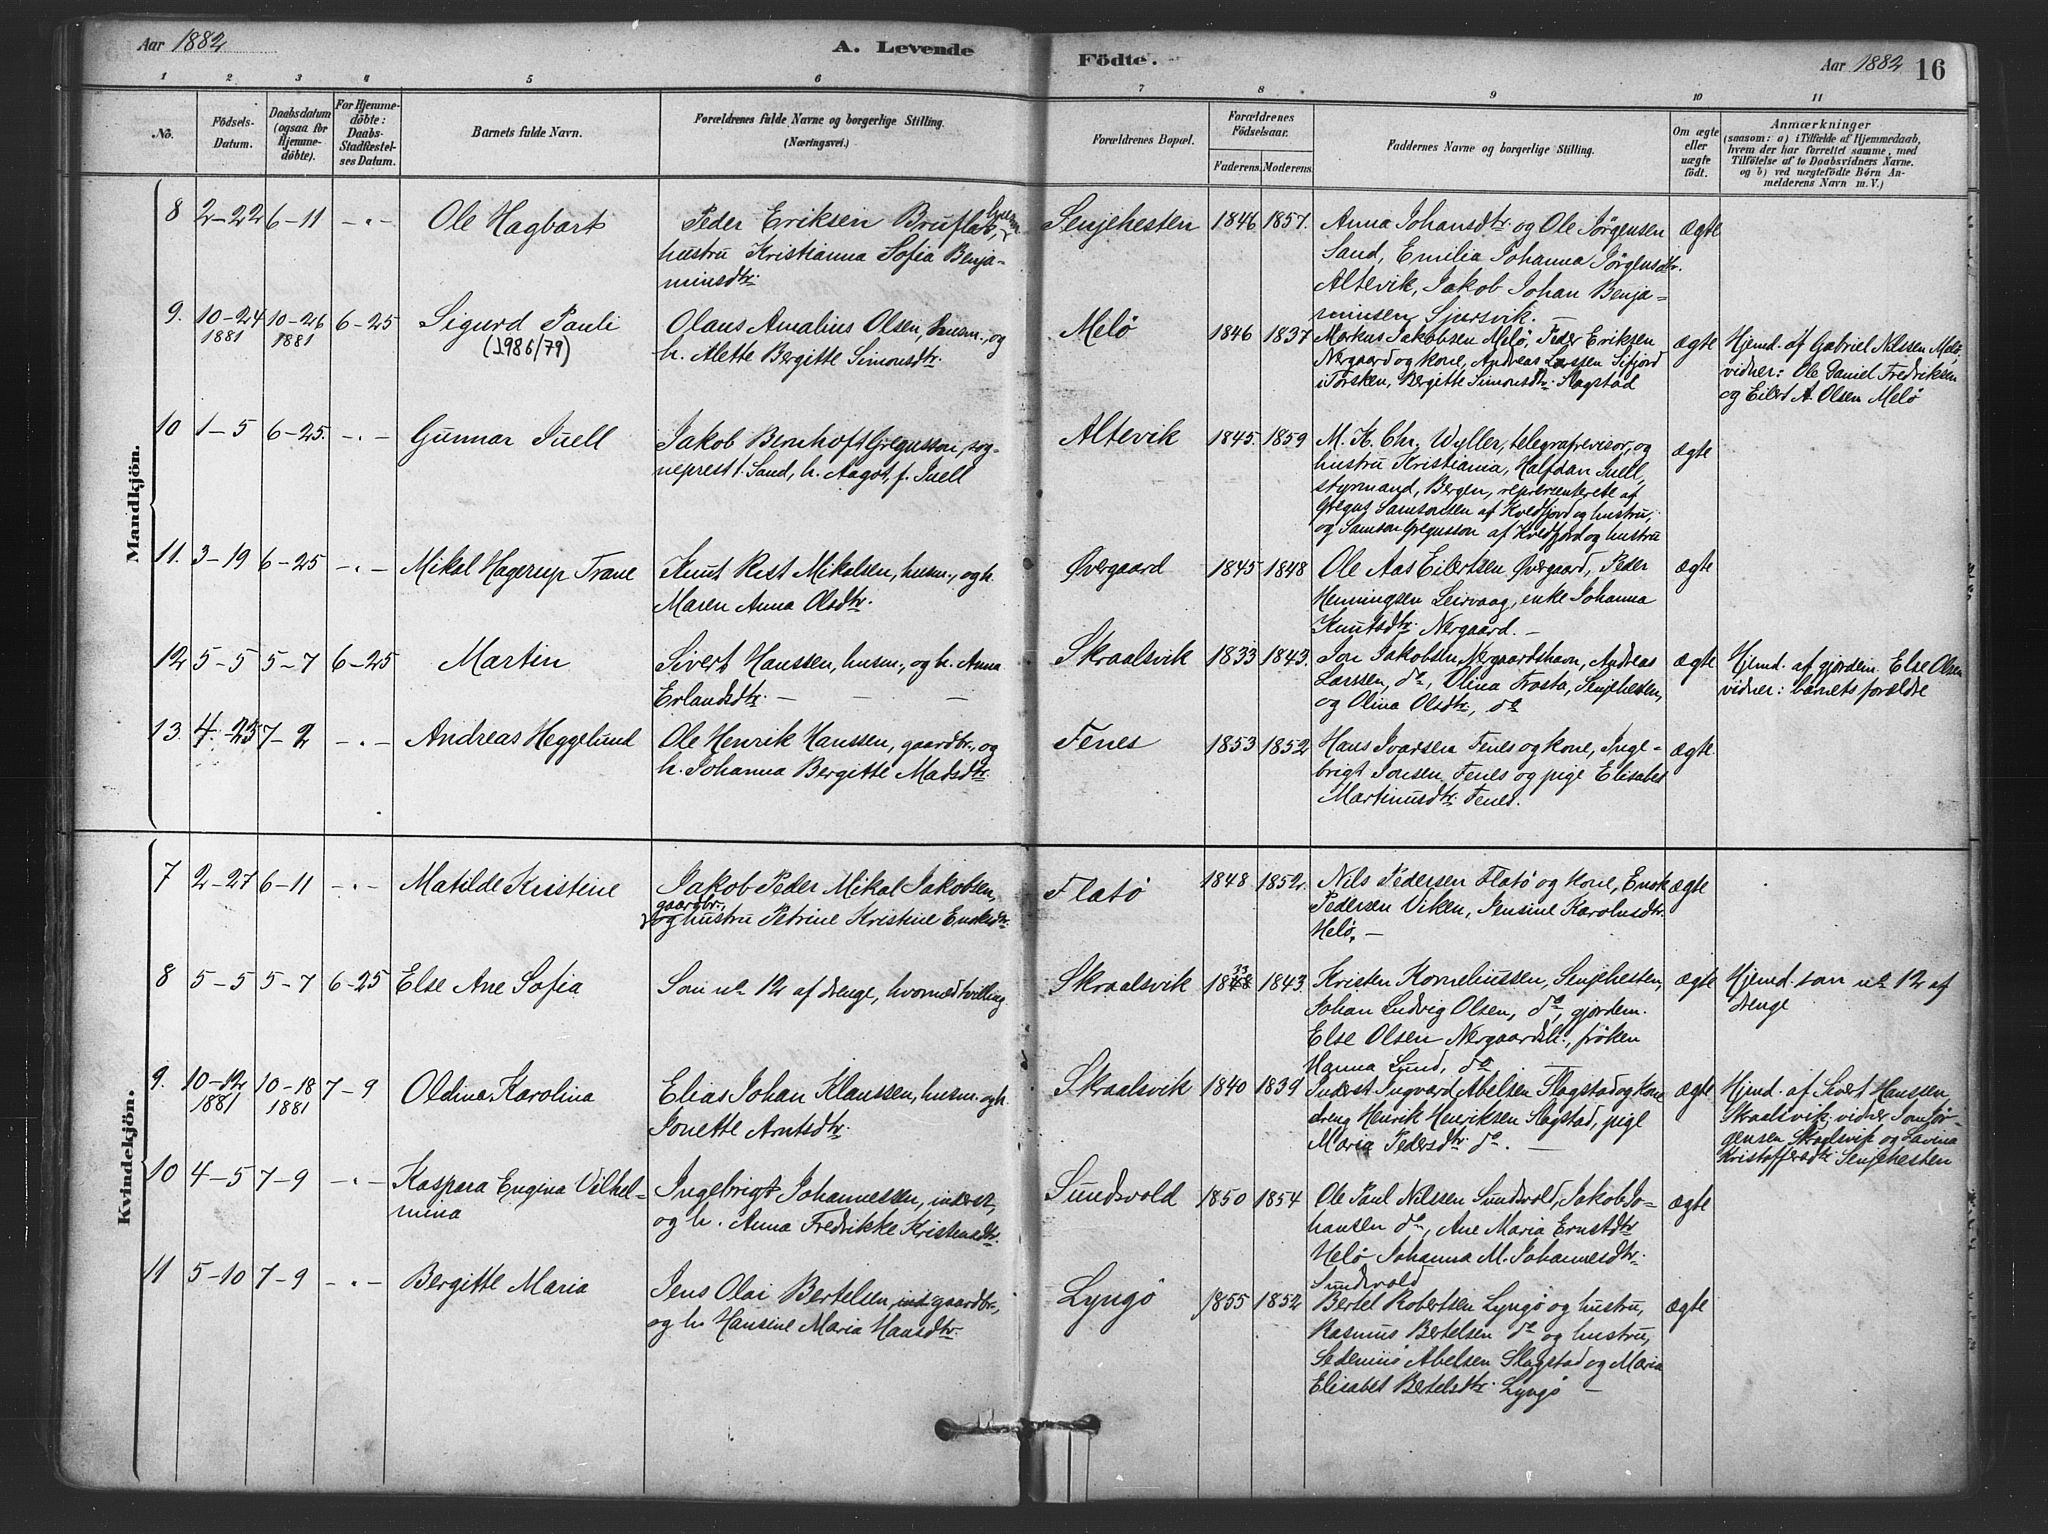 Aar 1882
A. Levende
Födte.
Aar 1882 16
1 2 3 4 5 6 7 8 9 10 11
No.
Födsels-
Datum.
Daabsdatum
(ogsaa for
Hjemme-
döbte).
For Hjemme-
döbte:
Daabs-
Stadfæstel-
ses Datum.
Barnets fulde Navn.
Forældrenes fulde Navne og borgerlige Stilling.
(Næringsvei.)
Forældrenes Bopæl.
Forældrenes
Födselsaar.
Faderens. Moderens.
Faddernes Navne og borgerlige Stilling.
Om ægte
eller
uægte
födt.
Anmærkninger
(saasom: a) i Tilfælde af Hjemmedaab,
hvem der har forrettet samme, med
Tilföielse af to Daabsvidners Navne.
og b) ved uægtefödte Börn An-
melderens Navn m. V.)
Mandkjön.
8 2-22 6-11 -"- Ole Hagbart
Peder Eriksen Bruflat,
hustru Kristianna Sofia Benja-
minsdtr.
Senjehesten 1846 1857.
Anna Johansdtr. og Ole Jørgensen
Sand, Emilia Johanna Jørgensdtr.
Altevik, Jakob Johan Benja-
minsen
ægte
9. 10-24 10-26 6-25 Sigurd Pauli
1881 1881
(1986/79)
Olaus Amalius Olsen, husm., og
h. Alette Bergitte Simonsdtr.
Melö 1846 1837
Markus Jakobsen Melö, Peder Eriksen
Nergaard og kone, Andreas Lassen Sifjord
i Torsken, Bergitte Simonsdtr. Slagstad
ægte
Hjemd. af Gabriel Nilssen Melö,
vidner: Ole Daniel Fredriksen
og Eilert A. Olsen Melö
10 1-5 6-25. -"- Gunnar Juell
Jakob Bernhoft Gregusson, sog-
neprest t. Sand, h. Aagot, f. Juell
Altevik 1845 1859
M. K. Chr. Wyller, telegrafrevisor, og
hustru Kristiania, Halfdan Juell,
styrmand, Bergen, repræsenterete af
Gregus Samsonsen af Kvedfjord og hustru,
og Samson Gregusson af Kvedfjord og hustru
ægte
11. 3-19 6-25 -"- Mikal Hagerup Trane
Knut Rist Mikalsen, husm., og h.
Maren Anna Olsdtr.
Øvergaard 1845 1848
Ole Aas Eilertsen Øvergaard, Peder
Henningsen Leirvaag, enke Johanna
Knutsdtr. Nergaard. -
ægte
12 5-5 5-7 6-25 Martin
Sivert Hanssen, husm., og h. Anna
Erlandsdtr. - - -
Skraalsvik 1833 1843.
Jon Jakobsen Nergaardshavn, Andreas
Larssen, do, Olina Frosta, Senjehesten,
og Olina Olsdtr., do
ægte
Hjemd. af gjordem. Else Olsen
vidner: barnets forældre
13. 4-25 7-2 -"- Andreas Heggelund
Ole Henrik Hanssen, gaardbr., og
h. Johanna Bergitte Madsdtr.
Fenes 1853 1852
Hans Ivarsen Fenes og kone, Inge-
brigt Jonsen Fenes og pige Elisabet
Martinusdtr. Fenes.
ægte
Kvindekjön.
7 2-27 6-11 -"- Matilde Kristine
Jakob Peder Mikal Jakobsen,
gaardbr.,
og hustru Petrine Kristine Enoksdtr.
Flatö 1848 1852.
Nils Pedersen Flatö og kone, Enok
Pedersen Viken, Jensine Karolusdtr.
Melö. -
ægte
8 5-5 5-7 6-25 Else Ane Sofia
Som no 12 af drenge, hvormed tvilling
Skraalsvik 1833 1843.
Kristen Korneliussen, Senjehesten,
Johan Ludvig Olsen, do, gjordem.
Else Olsen Nergaardsh., frøken
Hanna Lund, do
ægte
Hjemd. som no 12 af
drenge
9. 10-12 10-18 7-9 Oldina Karolina
1881 1881
Elias Johan Klaussen, husm. og h.
Jonette Arntsdtr.
Skraalsvik 1840 1839
Inderst Ingvard Abelsen Slagstad og kone
dreng Henrik Henriksen Slagstad, pige
Maria Pedersdtr. do. -
ægte
Hjemd. af Sivert Hanssen,
Skaalsvik; vidner Jon Jör-
gensen Skaalsvik og Lavina
Kristoffersdtr. Senjehesten
10 4-5 7-9 -"- Kaspara Eugina Vilhel-
mina
Ingebrigt Johannessen, inderst,
og h. Anna Fredrikke Kristensdtr.
Sundsvold 1850 1854
Ole Paul Nilssen Sundsvold, Jakob Jo-
hansen do, Ane Maria Ernstdtr.
Melö Johanna M. Johannesdtr.
Sundsvold
ægte
11 5-10 7-9 -"- Bergitte Maria
Jens Olai Bertelsen, gaardbr.,
og h. Hansine Maria Hansdtr.
Lyngö 1855 1852
Bertel Robertsen Lyngö og hustru,
Rasmus Bertelsen do og hustru,
Sedenius Abelsen Slagstad og Maria
Elisabet Bertelsdtr. Lyngö -
ægte